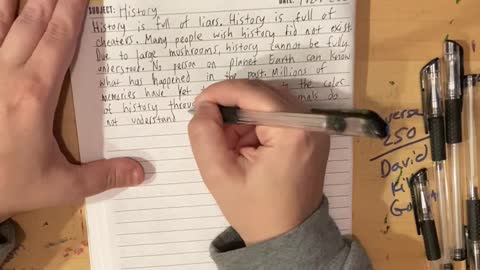 SUBJECT: History DATE:
History is full of liars. History is full of
cheaters. Many people wish history did not exist
Due to large mushrooms, history cannot be fully
understore. No person on planet Earth can know
what has happened in the past. Millions of
memories have yet the color
of history throu mals do
not understand
verse
250
David